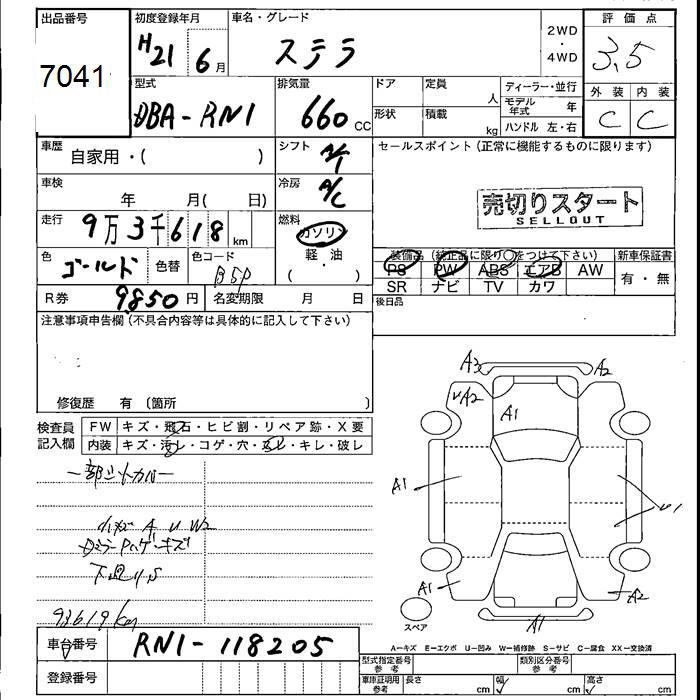 出品番号
7041
初度登録年月
H21 6月
車名・グレード
ステラ
2WD
・
4WD
評価点
3.5
外装 内装
C C
型式
DBA-RN1
排気量
660 CC
ドア
定員
人
形状
積載
kg
ディーラー・並行
モデル年式 年
ハンドル 左・右
車歴
自家用・( )
シフト
A/T
セールスポイント (正常に機能するものに限ります)
車検
年 月( 日)
冷房
A/C
売切りスタート
SELLOUT
走行
9万3千618km
燃料
ガソリン
・
軽油
( )
色
ゴールド
色替
色コード
B5P
装備品 (純正品に限り○をつけて下さい)
新車保証書
PS PW ABS エアB AW
SR ナビ TV カワ
有・無
R券
9850円
名変期限 月 日
後日品
注意事項申告欄 (不具合内容等は具体的に記入して下さい)
修復歴 有 (箇所 )
検査員
記入欄
FW キズ・飛石・ヒビ割・リペア跡・X要
内装 キズ・汚レ・コゲ・穴・スレ・キレ・破レ
小キズ A U W2
下廻りS
93619km
A3
A2
A2
A1
A1
U1
A1
A2
A1
スペア
A-キズ E-エクボ U-凹み W-補修跡 S-サビ C-腐食 XX-交換済
車台番号
RN1-118205
登録番号
型式指定番号
参考
類別区分番号
参考
車庫証明用
参考
長さ cm
幅 cm
高さ cm